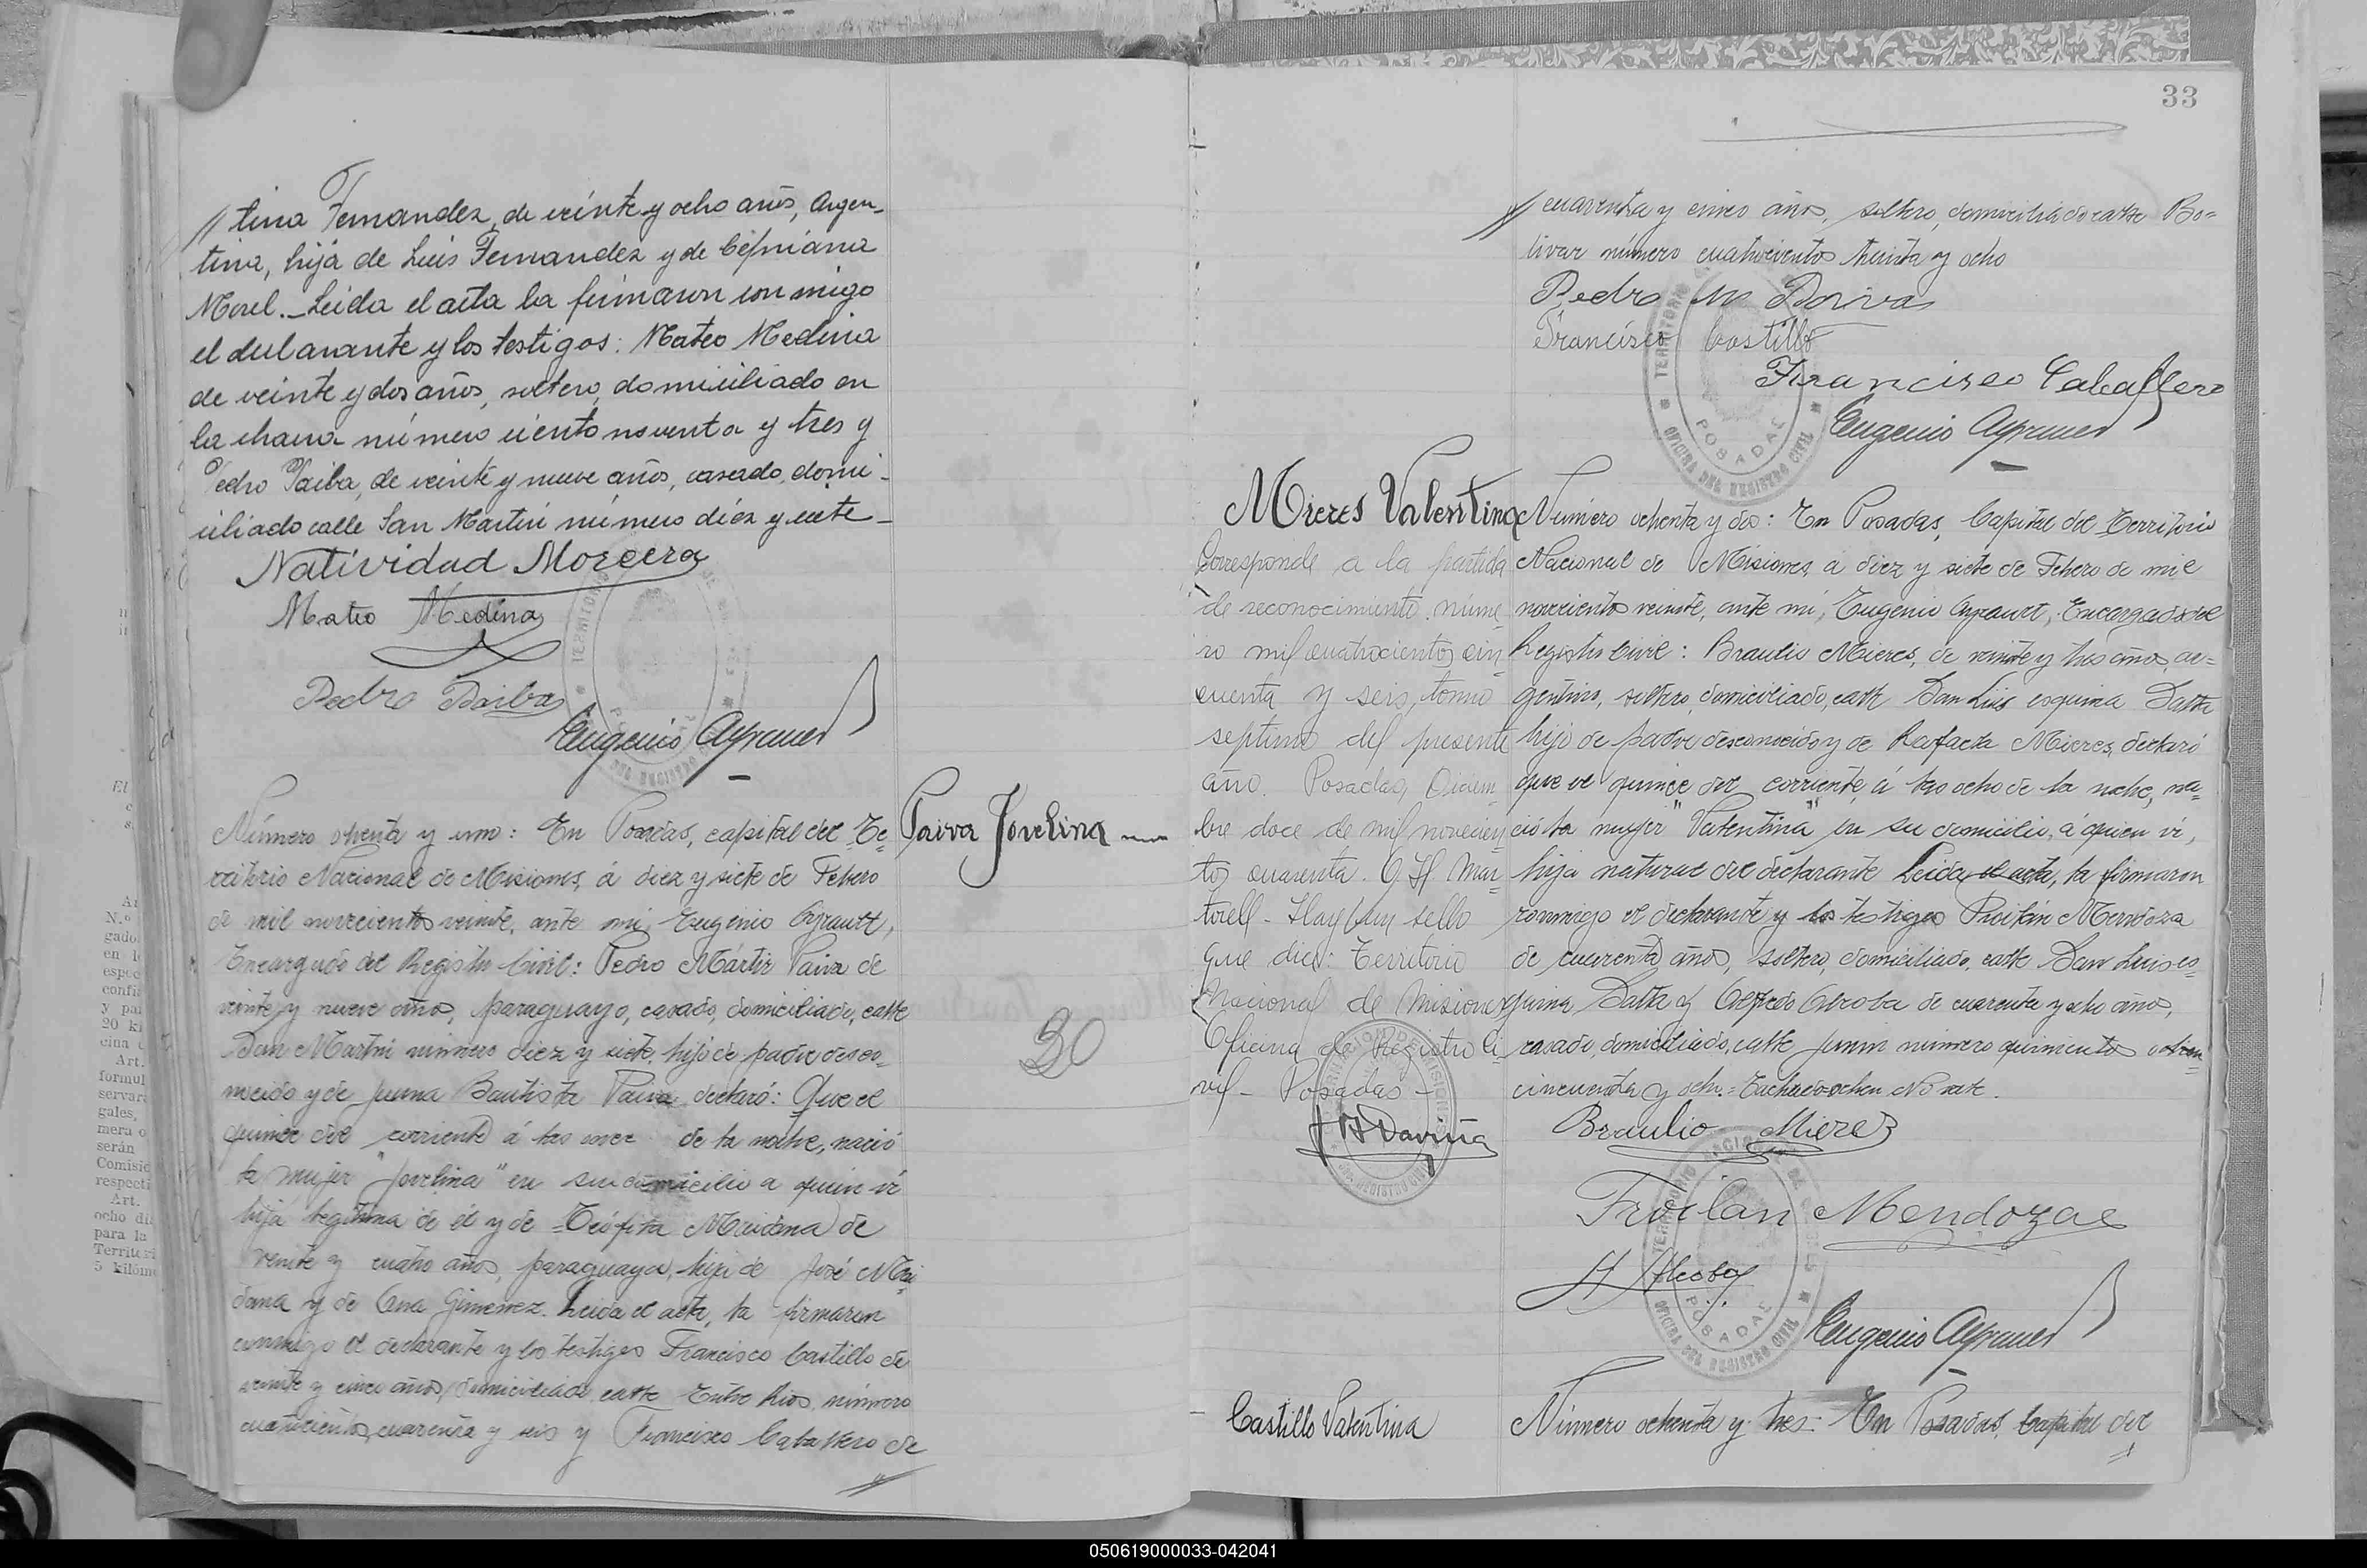 // tina Fernandez, de veinte y ocho años, Argen-
tina, hija de Luis Fernandez y de Cipriana
Morel. _ Leida el acta la firmaron conmigo
el declarante y los testigos: Mateo Medina
de veinte y dos años, soltero, domiciliado en
la chacra número ciento noventa y tres y
Pedro Paiba, de veinte y nueve años, casado, domi-
ciliado calle San Martin número diez y siete_
Natividad Moreira
Mateo Medina
Pedro Paiba
Eugenio Ayrault
Número ochenta y uno: En Posadas, capital del Te-
rritorio Nacional de Misiones, á diez y siete de Febrero
de mil novecientos veinte, ante mi, Eugenio Ayrault,
Encargado del Registro Civil: Pedro Mártir Paiva de
veinte y nueve años, paraguayo, casado, domiciliado, calle
San Martin número diez y siete, hijo de padre desco-
nocido y de Juana Bautista Paiva declaró: Que el
quince del corriente á las once de la noche, nació
la mujer "Jovelina" en su domicilio a quien vi
hija legitima de él y de Teófila Meridana de
veinte y cuatro años, paraguaya, hija de José Meri-
dana y de Ana Gimenez. Leida el acta, la firmaron
conmigo el declarante y los testigos Francisco Castillo de
veinte y cinco años, domiciliado, calle Entre Rios, número
cuatrocientos cuarenta y seis y Francisco Caballero de
//
Paiva Jovelina
30
33
// cuarenta y cinco años, soltero, domiciliado calle Bo=
livar número cuatrocientos treinta y ocho
Pedro M Paiva
Francisco Castillo
Francisco Caballero
Eugenio Ayrault
TERRITORIO
POSADAS
OFICINA DEL REGISTRO CIVIL
Mieres Valentina
Corresponde a la partida
de reconocimiento núme-
ro mil cuatrocientos cin
cuenta y seis, tomo
septimo del presente
año. Posadas, Diciem-
bre doce de mil novecien
tos cuarenta. G. H. Mar-
torell - Hay un sello
que dice: Territorio
Nacional de Misiones
Oficina de Registro Ci
vil - Posadas -
Daviña
Número ochenta y dos: En Posadas, Capital del Territorio
Nacional de Misiones, á diez y siete de Febrero de mil
novecientos veinte, ante mi, Eugenio Ayrault, Encargado del
Registro Civil: Braulio Mieres, de veinte y tres años, ar=
gentino, soltero, domiciliado, calle San Luis esquina Salta
hijo de padre desconocido y de Rafaela Mieres, declaró
que el quince del corriente, á las ocho de la noche, na=
ció la mujer "Valentina" en su domicilio, á quien vi,
hija natural del declarante Leida el acta, la firmaron
conmigo el declarante y los testigos Froilán Mendoza
de cuarenta años, soltero, domiciliado, calle San Luis es=
quina Salta y Alfredo Alcoba de cuarenta y ocho años,
casado, domiciliado, calle Junin número quinientos
cincuenta y ocho. = Tachado = ochen No vale.
Braulio Mierez
Froilan Mendoza
Eugenio Ayrault
Castillo Valentina
Número ochenta y tres: En Posadas, Capital del
//
050619000033-042041